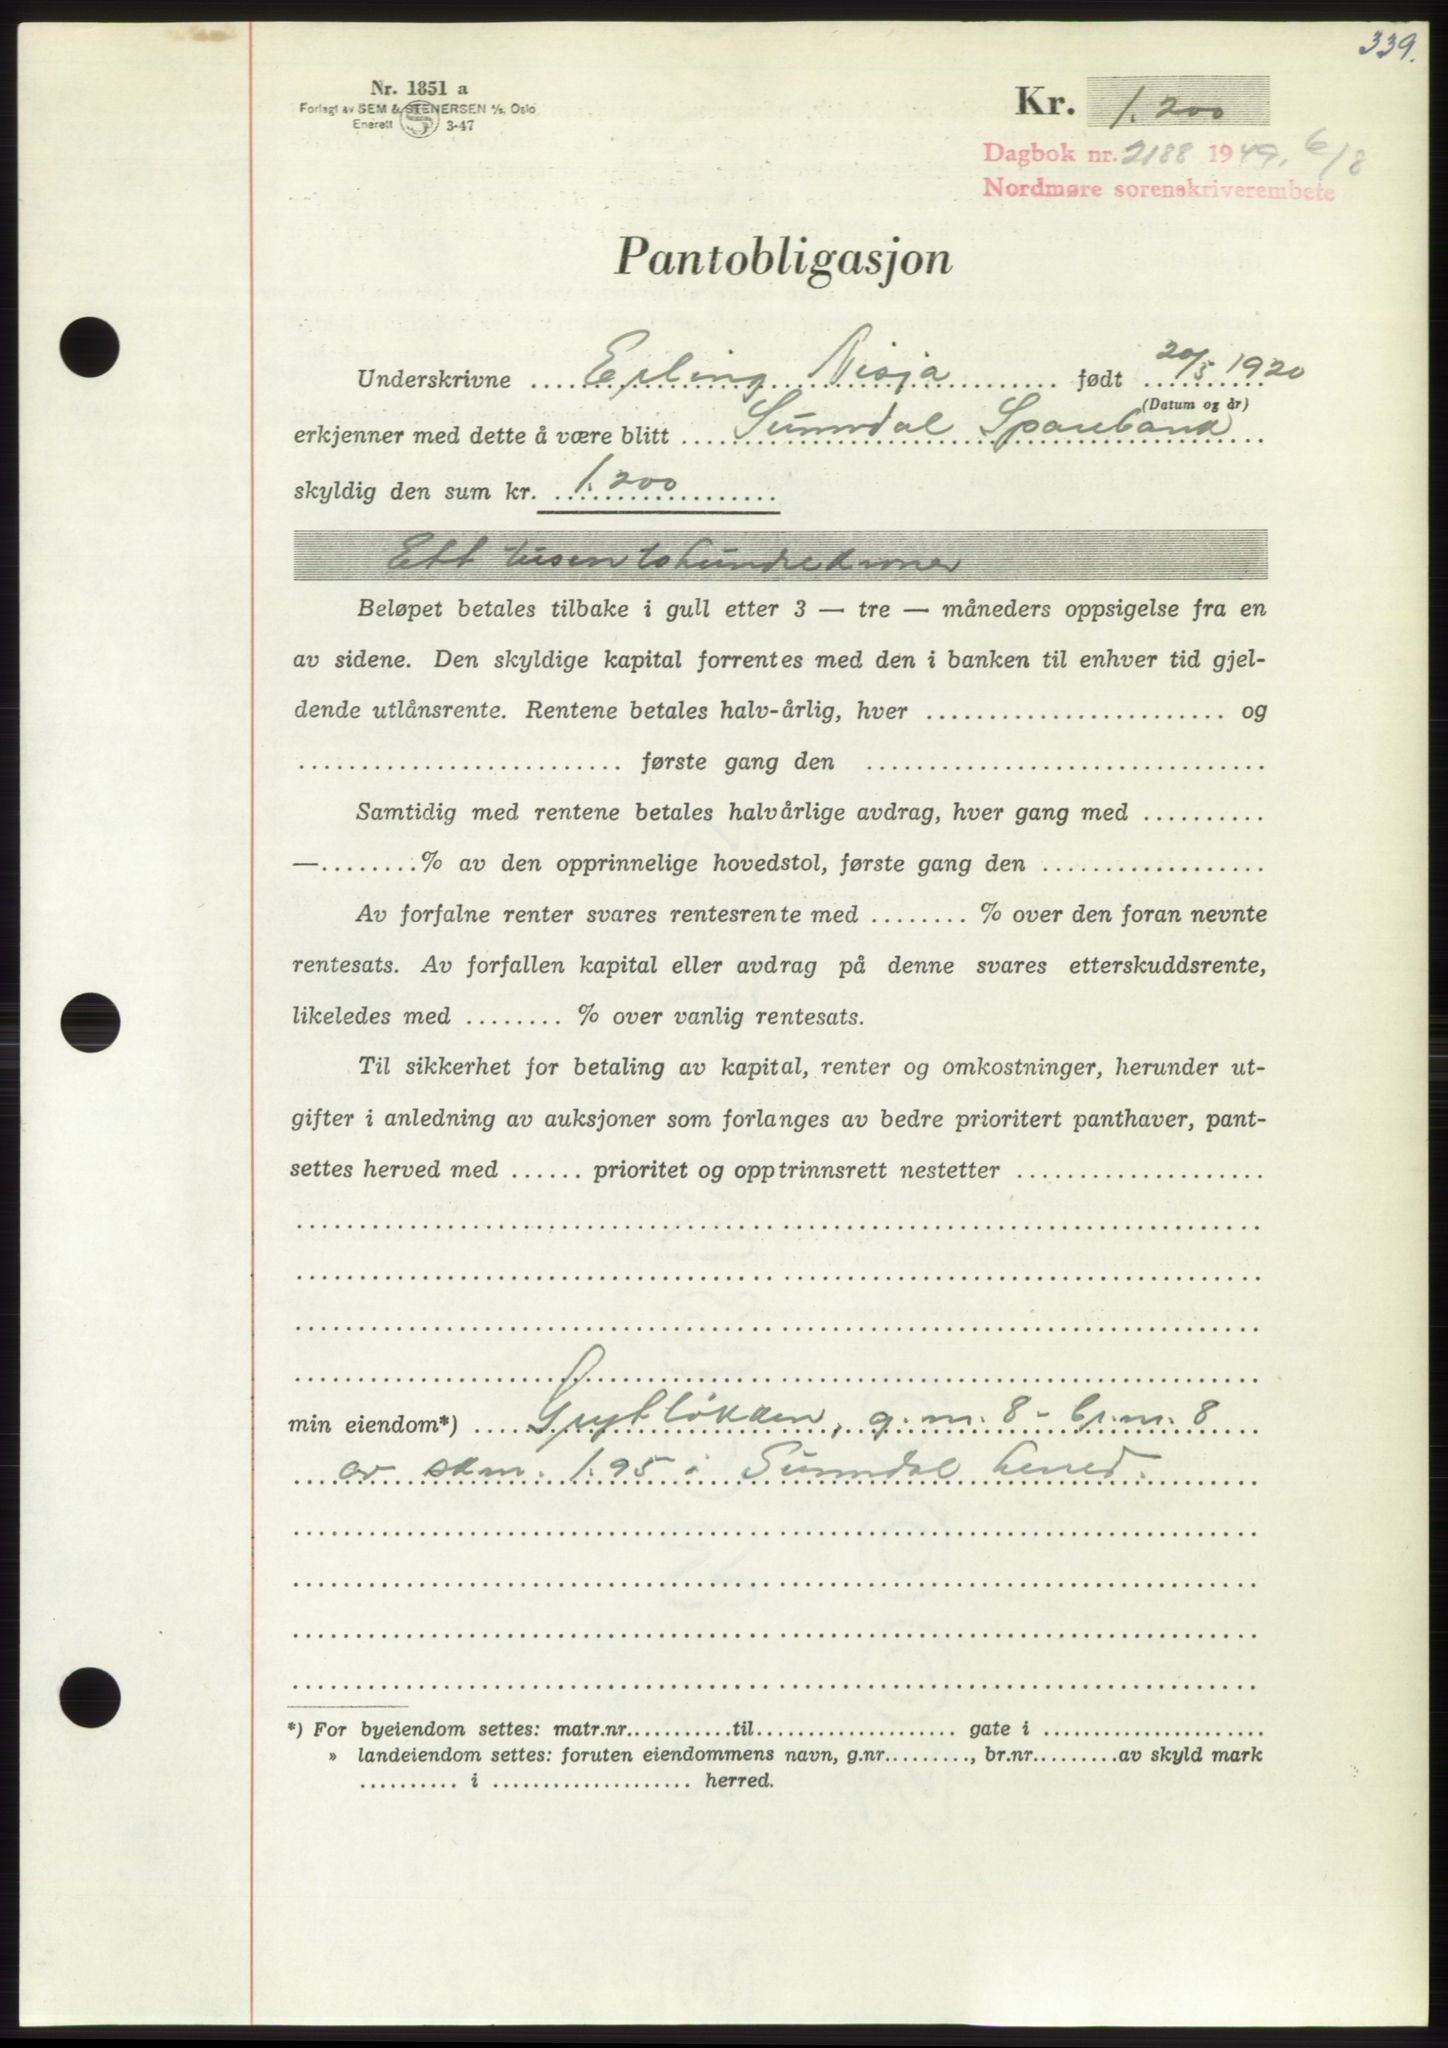 339.
Nr. 1851 a
Forlagt av SEM & STENERSEN A/S, Oslo
Enerett S 3-47
Kr. 1.200
Dagbok nr. 2188 1949, 6/8
Nordmøre sorenskriverembete
Pantobligasjon
Underskrivne ..... Erling Nisja ..... født 20/5 1920
(Datum og år)
erkjenner med dette å være blitt ..... Sunndal Sparebank
skyldig den sum kr. 1.200
Ett tusen to hundre kroner
Beløpet betales tilbake i gull etter 3 — tre — måneders oppsigelse fra en
av sidene. Den skyldige kapital forrentes med den i banken til enhver tid gjel-
dende utlånsrente. Rentene betales halv-årlig, hver ........................ og
.......................... første gang den ................................
Samtidig med rentene betales halvårlige avdrag, hver gang med ..........
—........% av den opprinnelige hovedstol, første gang den ..................
Av forfalne renter svares rentesrente med ........ % over den foran nevnte
rentesats. Av forfallen kapital eller avdrag på denne svares etterskuddsrente,
likeledes med ........ % over vanlig rentesats.
Til sikkerhet for betaling av kapital, renter og omkostninger, herunder ut-
gifter i anledning av auksjoner som forlanges av bedre prioritert panthaver, pant-
settes herved med ...... prioritet og opptrinnsrett nestetter ....................
min eiendom*) .... Grytløkken, g.nr. 8 - br.nr. 8
av skm. 1.95 i Sunndal herred.
*) For byeiendom settes: matr.nr...........til................... gate i ......................
» landeiendom settes: foruten eiendommens navn, g.nr........., br.nr.........av skyld mark
.......... i ................... herred.